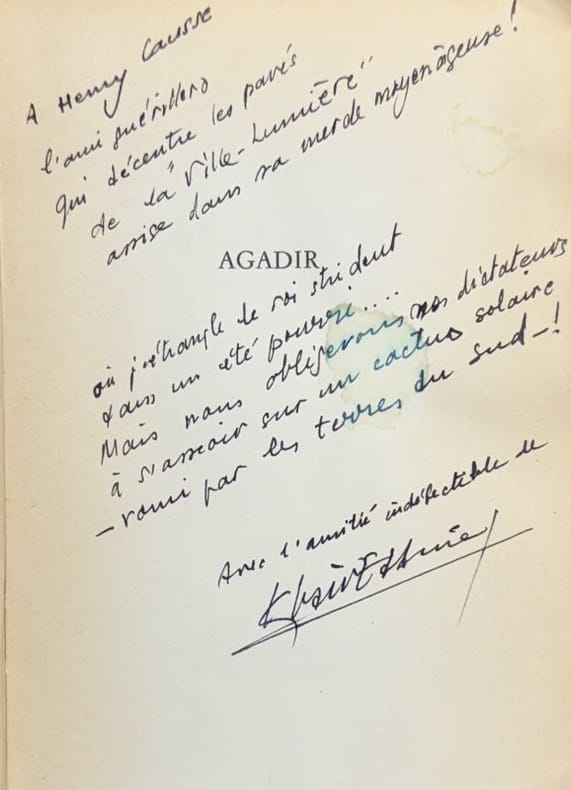 A Henry Causse
l'ami guérillero
qui décentre les pavés
de la "Ville-Lumière"
assise dans sa merde moyenâgeuse!
AGADIR
où j'étrangle le roi strident
dans un été pourri....
Mais nous obligerons nos dictateurs
à s'asseoir sur un cactus solaire
– vomi par les terres du sud –!
Avec l'amitié indéfectible de
Khaïr-Eddine